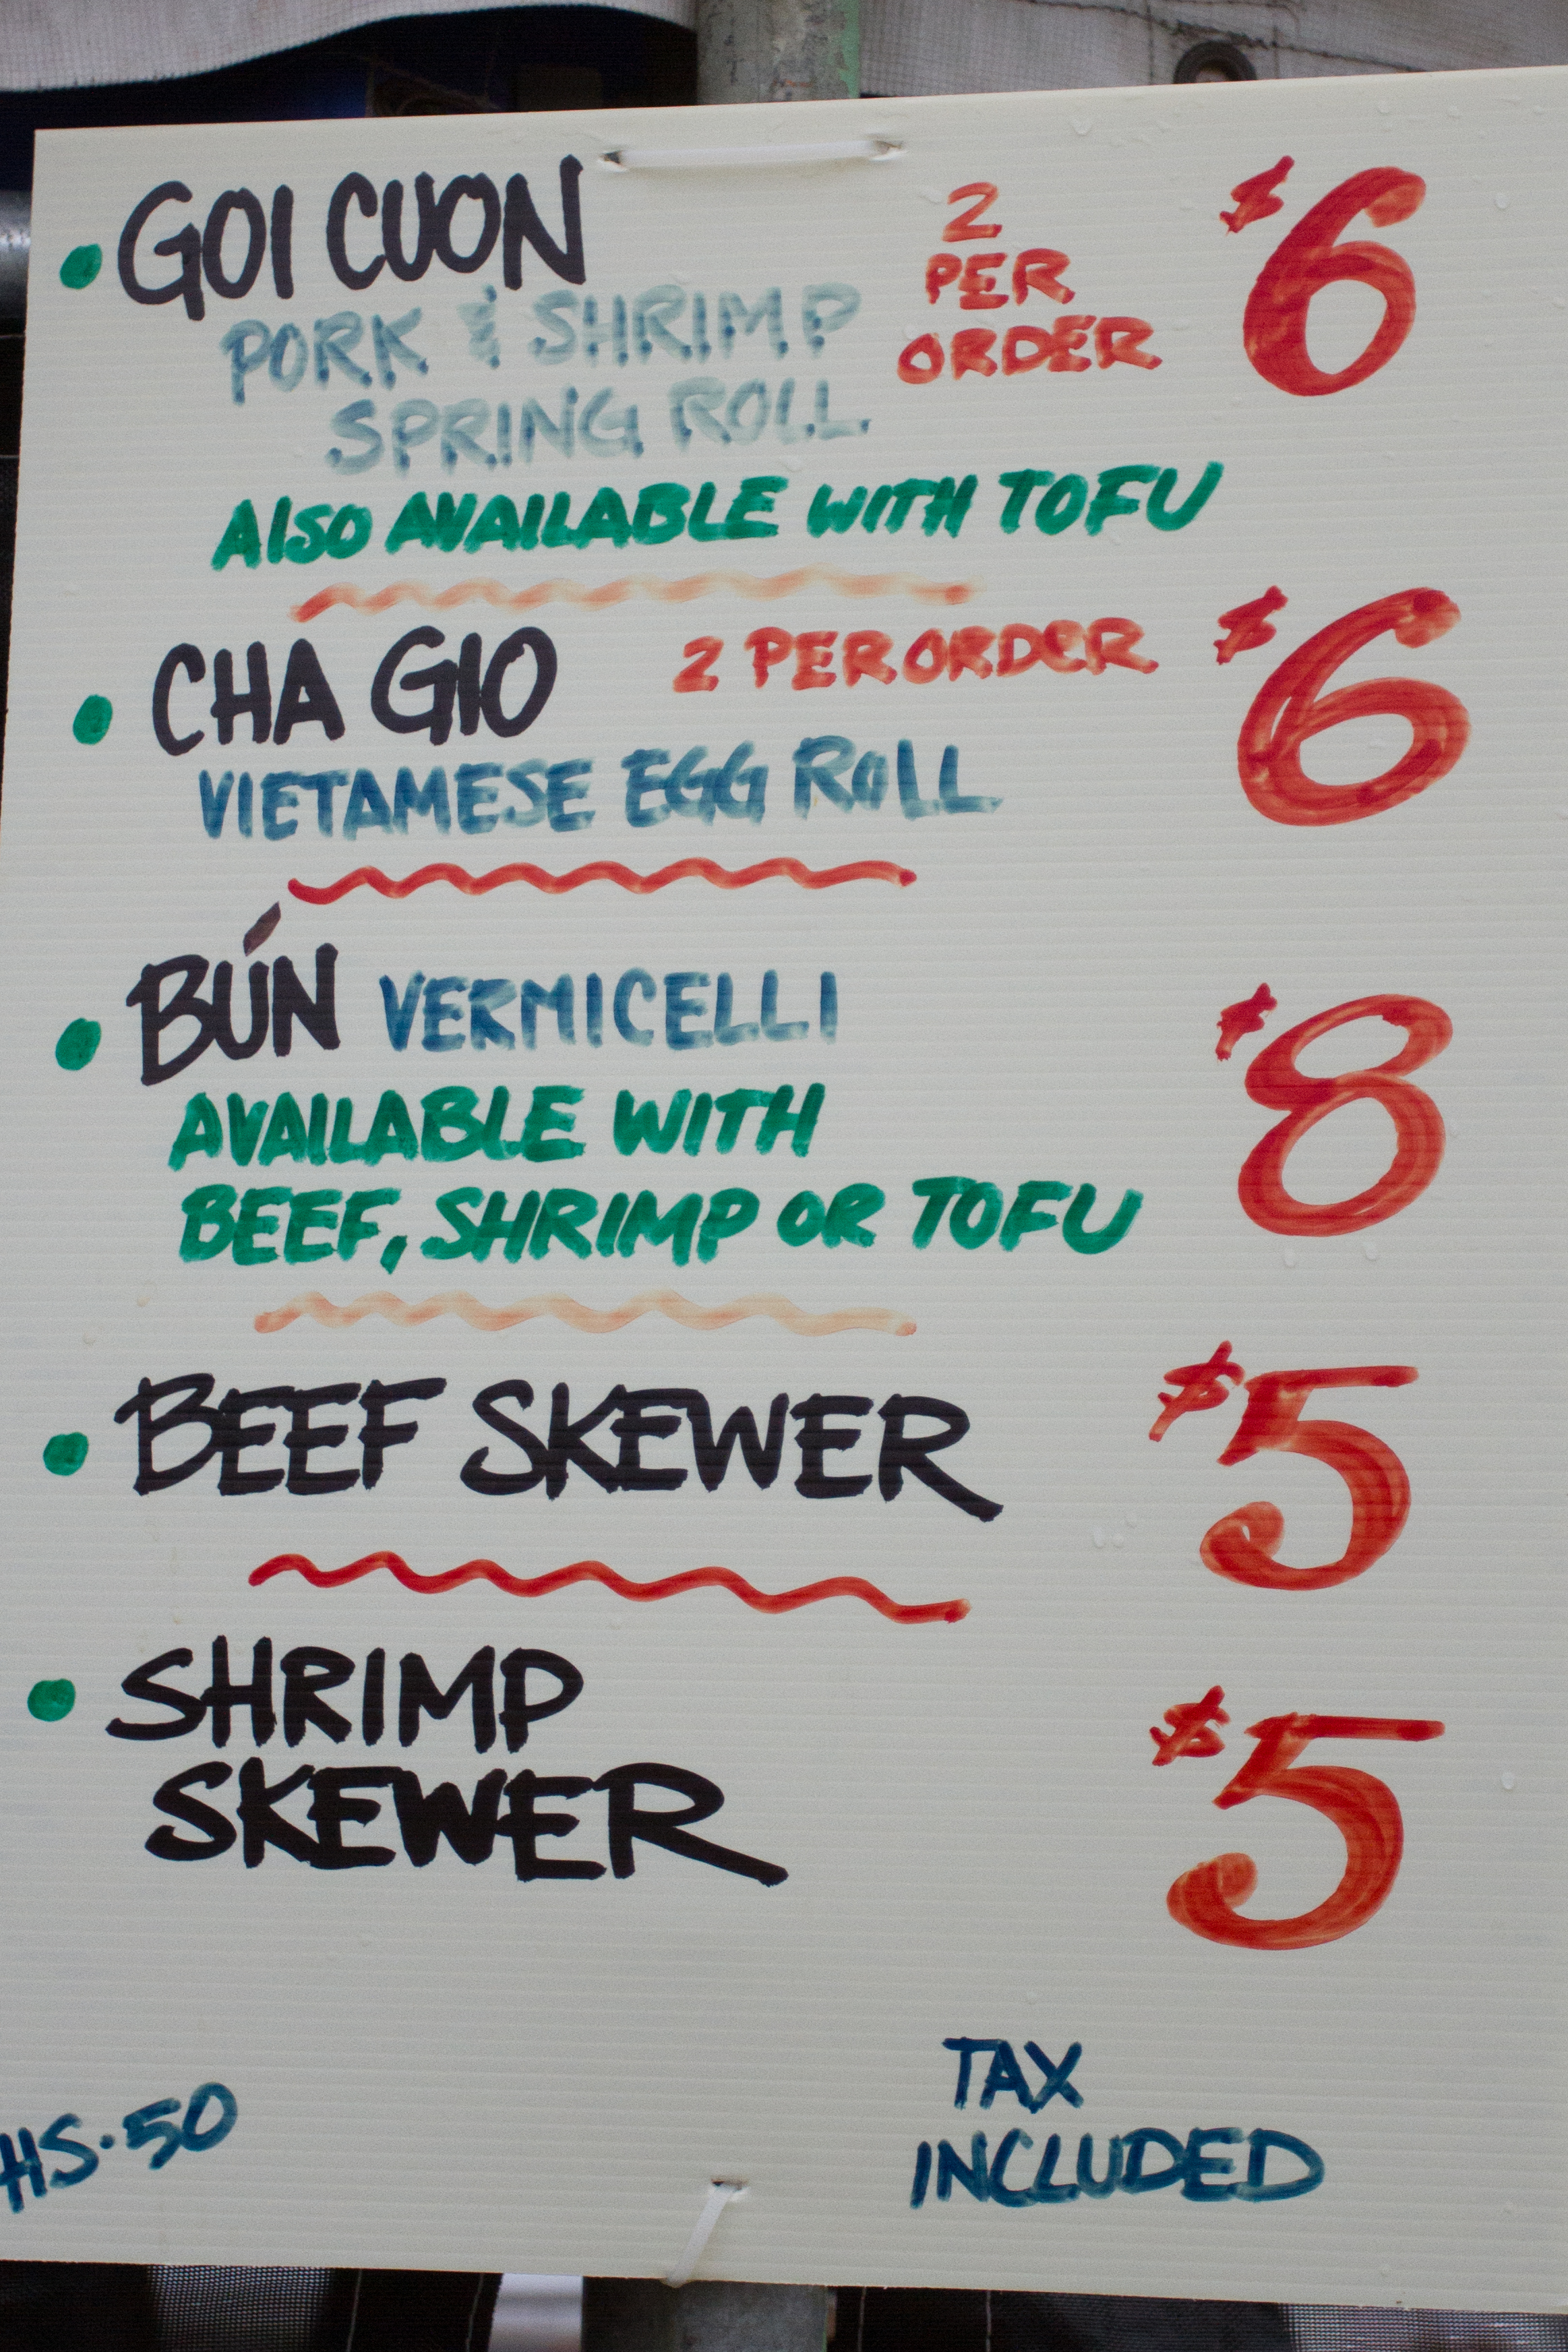 • GOI CUON
2
PER
ORDER
$6
PORK & SHRIMP
SPRING ROLL
ALSO AVAILABLE WITH TOFU
• CHA GIO 2 PER ORDER $6
VIETAMESE EGG ROLL
• BÚN VERMICELLI $8
AVAILABLE WITH
BEEF, SHRIMP OR TOFU
• BEEF SKEWER $5
• SHRIMP $5
SKEWER
TAX
INCLUDED
HS·50